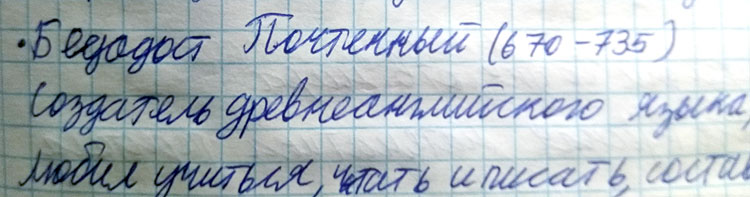 • Бедадост Почтенный (670-735)
Создатель древнеанглийского языка,
Любил учиться, читать и писать, состав